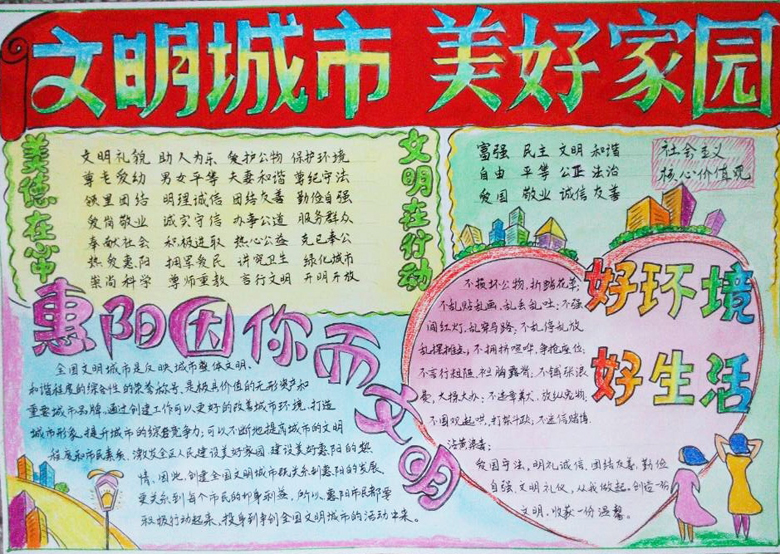 文明城市 美好家园
美德在心中
文明礼貌 助人为乐 爱护公物 保护环境
尊老爱幼 男女平等 夫妻和谐 尊纪守法
邻里团结 明理诚信 团结友善 勤俭自强
爱岗敬业 诚实守信 办事公道 服务群众
奉献社会 积极进取 热心公益 克己奉公
热爱惠阳 拥军爱民 讲究卫生 绿化城市
崇尚科学 尊师重教 言行文明 开明开放
文明在行动
富强 民主 文明 和谐
自由 平等 公正 法治
爱国 敬业 诚信 友善
社会主义
核心价值观
惠阳因你而文明
全国文明城市是反映城市整体文明、
和谐程度的综合性的荣誉称号、是极具价值的无形资产和
重要城市品牌。通过创建工作可以更好的改善城市环境、打造
城市形象、提升城市的综合竞争力;可以不断地提高城市的文明
程度和市民素质、激发全区人民建设美好家园、建设美好惠阳的热
情、因此,创建全国文明城市既关系到惠阳的发展、
更关系到每个市民的切身利益。所以、惠阳市民都要
积极行动起来、投身到争创全国文明城市的活动中来。
好环境
好生活
不损坏公物、折踏花草;
不乱贴乱画、乱丢乱吐;不强
闯红灯、乱穿马路;不乱停乱放
乱摆摊点;不拥挤喧哗、争抢座位;
不言行粗陋、袒胸露背;不铺张浪
费、大操大办;不违章养犬、放纵宠物;
不围观起哄、打架斗殴;不迷信赌博、
沾黄染毒;
爱国守法,明礼诚信、团结友善、勤俭
自强、文明礼仪,从我做起。创造一份
文明、收获一份温馨。